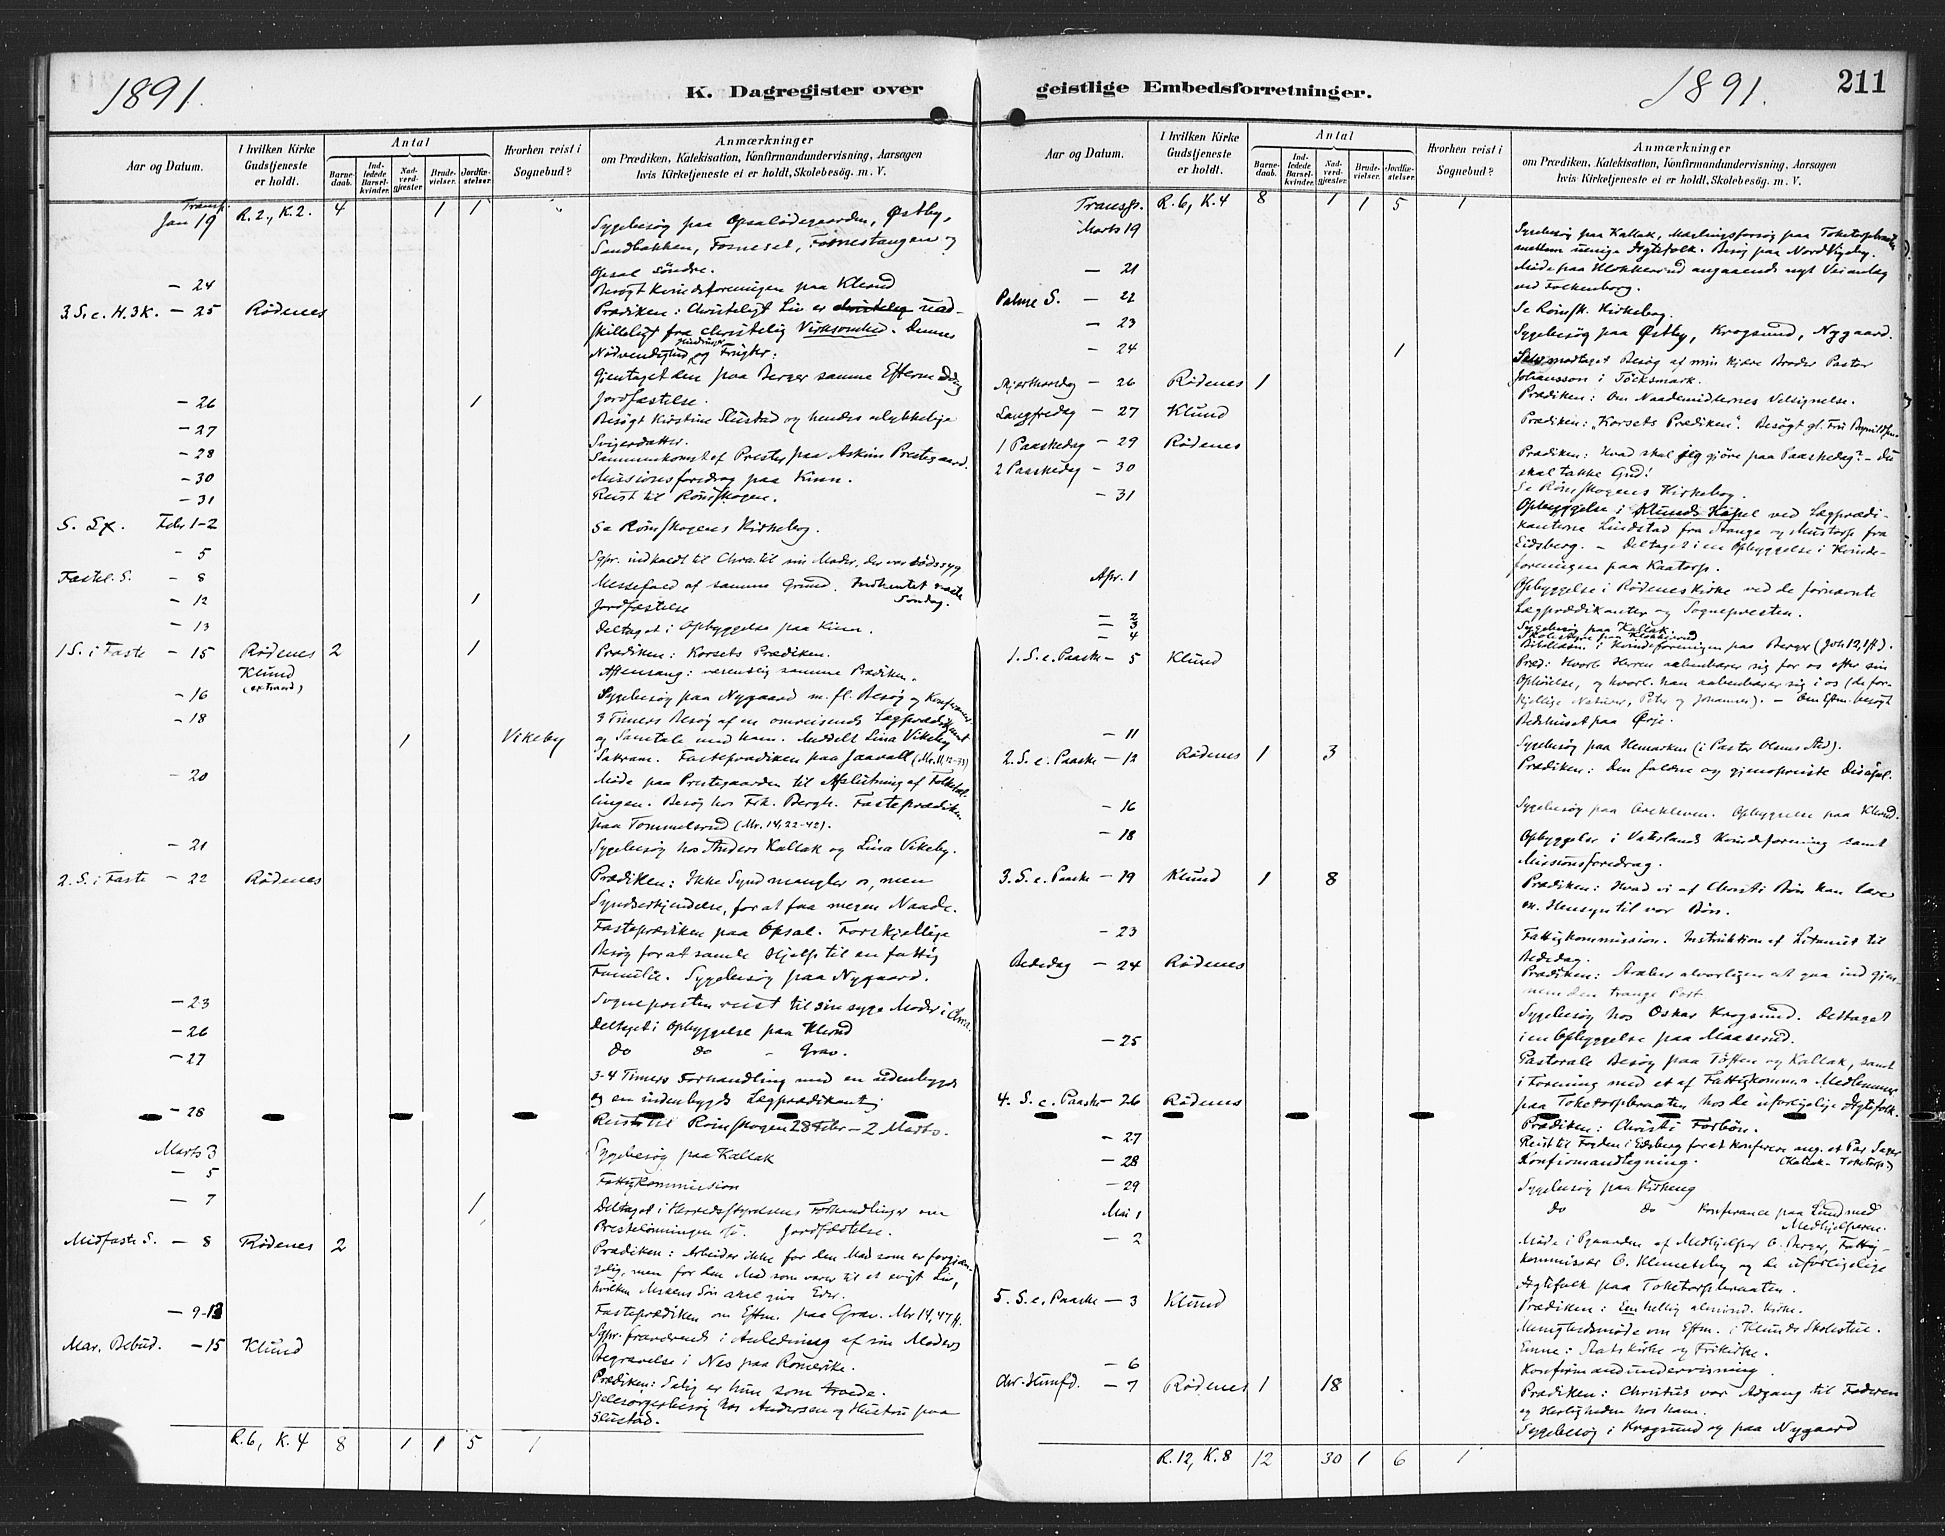 1891.
K. Dagregister over
Aar og Datum.
I hvilken Kirke Gudstjeneste er holdt.
Antal
Barnedaab.
Indledede Barselkvinder.
Nadverdgjester
Brudevielser.
Jordfæstelser.
Hvorhen reist i Sognebud?
Anmærkninger
om Prædiken, Katekisation, Konfirmandundervisning, Aarsagen
hvis Kirketjeneste ei er holdt, Skolebesøg. m. V.
Transp. R. 2, K. 2. 4 1 1
Jan 19 Sygebesøg paa Opsalødegaarden, Østby,
Sandbakken, Fosneset, Fosnestangen og
Opsal Søndre.
- 24 Besøgt Kvindeforeningen paa Klund
3. S. e. H. 3 K. - 25 Rødenes Prædiken: Christeligt Liv er christelig uad-
skilleligt fra christelig Virksomhed. Dennes
Nødvendighed og Frugter:
Gjentaget den paa Berger samme Efterm
- 26 1 Jordfæstelse.
- 27 Besøgt Kirstine Slustad og hendes ulykkelige
Svigerdatter.
- 28 Sammenkomst af Prester paa Askim Prestegaard.
- 30 Missionsforedrag paa Kinn.
- 31 Reist til Rømskogen.
S. Sx. Febr 1-2 Se Rømskogens Kirkebog.
- 5 Sgpr. indkaldt til Chra. til sin Moder, der var dødssyg
Fastel. S. - 8 Messefald af samme Grund. Indhentet næste
Søndag.
- 12 1 Jordfæstelse
- 13 Deltaget i Opbyggelse paa Kinn.
1 S. i Faste - 15 Rødenes 2 1 Prædiken: Korsets Prædiken.
Klund Aftensang: væsentlig samme Prædiken.
(extraord)
- 16 Sygebesøg paa Nygaard m. fl. Besøg og
- 18 3 Timers Besøg af en omreisende Lægprædikant
og Samtale med ham. Meddelt Lina Vikeby
1 Vikeby
Sakram. Fasteprædiken paa Jaavall
- 20 Møde paa Prestegaarden til Afslutning af
lingen. Besøg hos Frk. Bergh. Fasteprædiken
paa Tommelsrud (Mr. 14, 22-42).
- 21 Sygebesøg hos Anders Kallak og Lina Vikeby.
2. S. i Faste - 22 Rødenes Prædiken: Ikke Synd mangler os, men
Syndserkjendelse, for at faa megen Naade.
Fasteprædiken paa Opsal. Forskjellige
Besøg for at samle Hjelp til en fattig
Familie. Sygebesøg paa Nygaard.
- 23 Sognepresten reist til sin syge Moder i Chra.
- 26 Deltaget i Opbyggelse paa Klund
- 27 do do - Grav.
3-4 Timers Forhandling med en udenbygds
og en indenbygds Lægprædikant
- 28 Reist til Rømskogen 28 Febr - 2 Marts.
Marts 3 Sygebesøg paa Kallak
- 5 Fattigkommission
- 7 1 Deltaget i Herredsstyrelsens Forhandlinger om
Prestelønningen. Jordfæstelse.
Midfaste S. - 8 Rødenes 2 Prædiken: Arbeider ikke for den Mad som er forgjæn-
gelig, men for den Mad som varer til et evigt Liv,
hvilken Meskens Søn skal give Eder.
Fasteprædiken om Eftm. paa Grav. Mr 14, 47 ff.
- 9-13 Sgpr. fraværende i Anledning af sin Moders
Begravelse i Nes paa Romerike.
Mar. Bebud. - 15 Klund Prædiken: Salig er hun som troede.
Sjelesørgerbesøg hos Andersen og Hustru paa
Slustad.
R. 6, K. 4 8 1 1 5 1
geistlige Embedsforretninger.
1891.
211
Aar og Datum.
I hvilken Kirke Gudstjeneste er holdt.
Antal
Barnedaab.
Indledede Barselkvinder.
Nadverdgjester.
Brudevielser.
Jordfæstelser.
Hvorhen reist i Sognebud?
Anmærkninger
om Prædiken, Katekisation, Konfirmandundervisning, Aarsagen
hvis Kirketjeneste ei er holdt, Skolebesøg. m. V.
Transp. R. 6, K. 4 8 1 1 5 1
Marts 19 Sygebesøg paa Kallak, Mæglingsforsøg paa
mellem uenige Ægtefolk. Besøg paa Nord Vigeby.
- 21 Møde paa Klokkerud angaaende nyt Veianlæg
ved Falkenborg.
Palme S. - 22 Se Rømsk. Kirkebog.
- 23 Sygebesøg paa Østby, Krogsund, Nygaard.
- 24 1 modtaget Besøg af min kjære Broder Pastor
Johansson i Töcksmark.
Skjærthorsdag - 26 Rødenes 1 Prædiken: Om Naademidlernes Velsignelse.
Langfredag - 27 Klund Prædiken: "Korsets Prædiken". Besøgt gl. Fru
1 Paaskedag - 29 Rødenes Prædiken: Hvad skal jeg gjøre paa Paaskedag? - Du
skal takke Gud!
2 Paaskedag - 30 Se Rømskogens Kirkebog.
- 31 Opbyggelse i Klunds Kapel ved Lægprædi-
kanterne Lindstad fra Stange og Mustorp fra
Eidsberg. - Deltaget i en Opbyggelse i Kvinde-
foreningen paa Kaatorp.
Apr. 1 Opbyggelse i Rødenes Kirke ved de førnævnte
Lægprædikanter og Sognepresten.
- 2 Sygebesøg paa Kallak
- 3 Skolestyre paa Klokkerud
- 4 Bibellæsn. i Kvindeforeningen paa Berger (Joh 12, 1 ff).
1. S. e. Paaske - 5 Klund Præd: Hvorl. Herren aabenbarer sig for os efter sin
Opstandelse, og hvorl. han aabenbarer sig i os (de for-
skjellige Naturer, Peter og Johannes). - Om Eftm. besøgt
Bedehuset paa Ørje.
- 11 Sygebesøg paa Hemarken
2. S. e. Paaske - 12 Rødenes 1 3 Prædiken: Den faldne og gjenopreiste Discipel.
- 16 Sygebesøg paa Opbyggelse paa Klund.
- 18 Opbyggelse i Vaterlands Kvindeforening samt
Missionsforedrag.
3. S. e. Paaske - 19 Klund 1 8 Prædiken: Hvad vi af Christi Bøn kan lære
m. Hensyn til vor Bøn.
- 23 Fattigkommission. Instruktion af Litaniet til
Bededag.
Bededag - 24 Rødenes Prædiken: Stræber alvorligen at gaa ind gjen-
nem den trange Port
Sygebesøg hos Oskar Krogsund. Deltaget
- 25 i en Opbyggelse paa Maaserud.
Pastorale Besøg paa Tøften og Kallak, samt
i Forening med et af Fattigkomm.s Medlemmer
paa Toketorpbraaten hos de uforligelige Ægtefolk.
4. S. e. Paaske - 26 Rødenes Prædiken: Christi Forbøn.
- 27 Reist til Eidsberg for at konferere ang. et Par Sager
- 28 Konfirmandtegning. (Kallak - Toketorp)
- 29 Sygebesøg paa Kirkeng
Mai 1 do do Konferance paa Lund med
Medhjelperen.
- 2 Møde i Pgaarden af Medhjelper O. Berger, Fattig-
kommissær O. Klemetsby og de uforligelige
Ægtefolk paa Toketorpbraaten.
5. S. e. Paaske - 3 Klund Prædiken: En hellig almind. Kirke.
Menighedsmøde om Eftm. i Klunds Skolestue.
Emne: Statskirke og Frikirke.
- 6 Konfirmandundervisning.
Chr. Himfd. - 7 Rødenes 1 18 Prædiken: Christus vor Adgang til Faderen
og Herligheden hos ham.
Sygebesøg i Krogsund og paa Nygaard
R. 12, K. 8 12 30 1 6 1